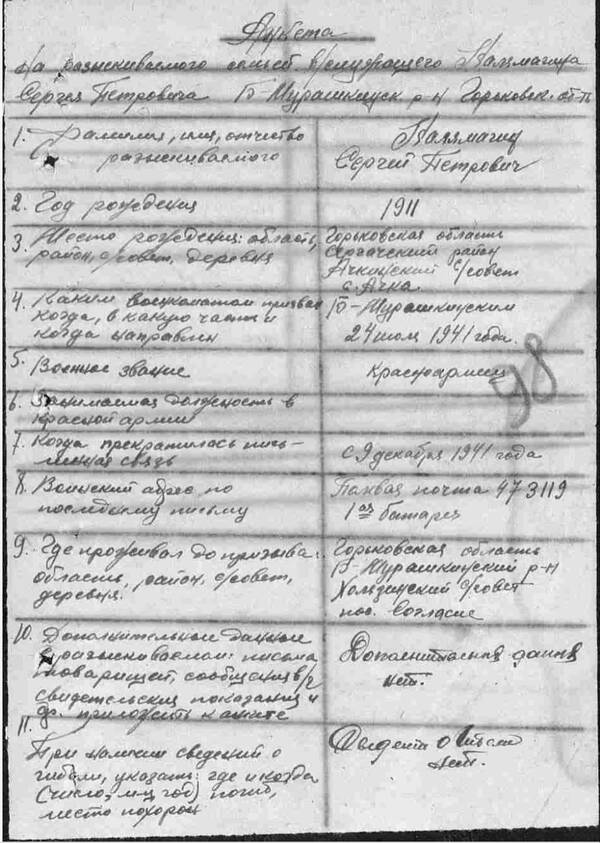 Анкета
На разыскиваемого семьей в/служащего
Сергея Петровича Б-Мурашкинск. р-н Горьковск. об-ти
1. Фамилия, имя, отчество
разыскиваемого
Сергей Петрович
2. Год рождения
1911
3. Место рождения: область,
район, с/совет, деревня
Горьковская область
Сергачский район
Ачкинский с/совет
с. Ачка.
4. Каким военкоматом призван
когда, в какую часть и
когда направлен
Б-Мурашкинским
24 1941 года.
5. Военное звание
красноармеец
6. Занимаемая должность в
красной армии
7. Когда прекратилась пись-
менная связь
с 9 декабря 1941 года
8. Воинский адрес по
последнему письму
почта 473119
1ая батарея
9. Где проживал до призыва:
область, район, с/совет,
деревня.
Горьковская область
Б-Мурашкинский р-н
с/совет
пос. Согласие
10. Дополнительные данные
о разыскиваемом: письма
товарищей, сообщения в/ч
свидетельские показания и
др. приложить к анкете
нет.
11.
При наличии сведений о
гибели, указать: где и когда
(число, м-ц, год) погиб,
место похорон
нет.
98